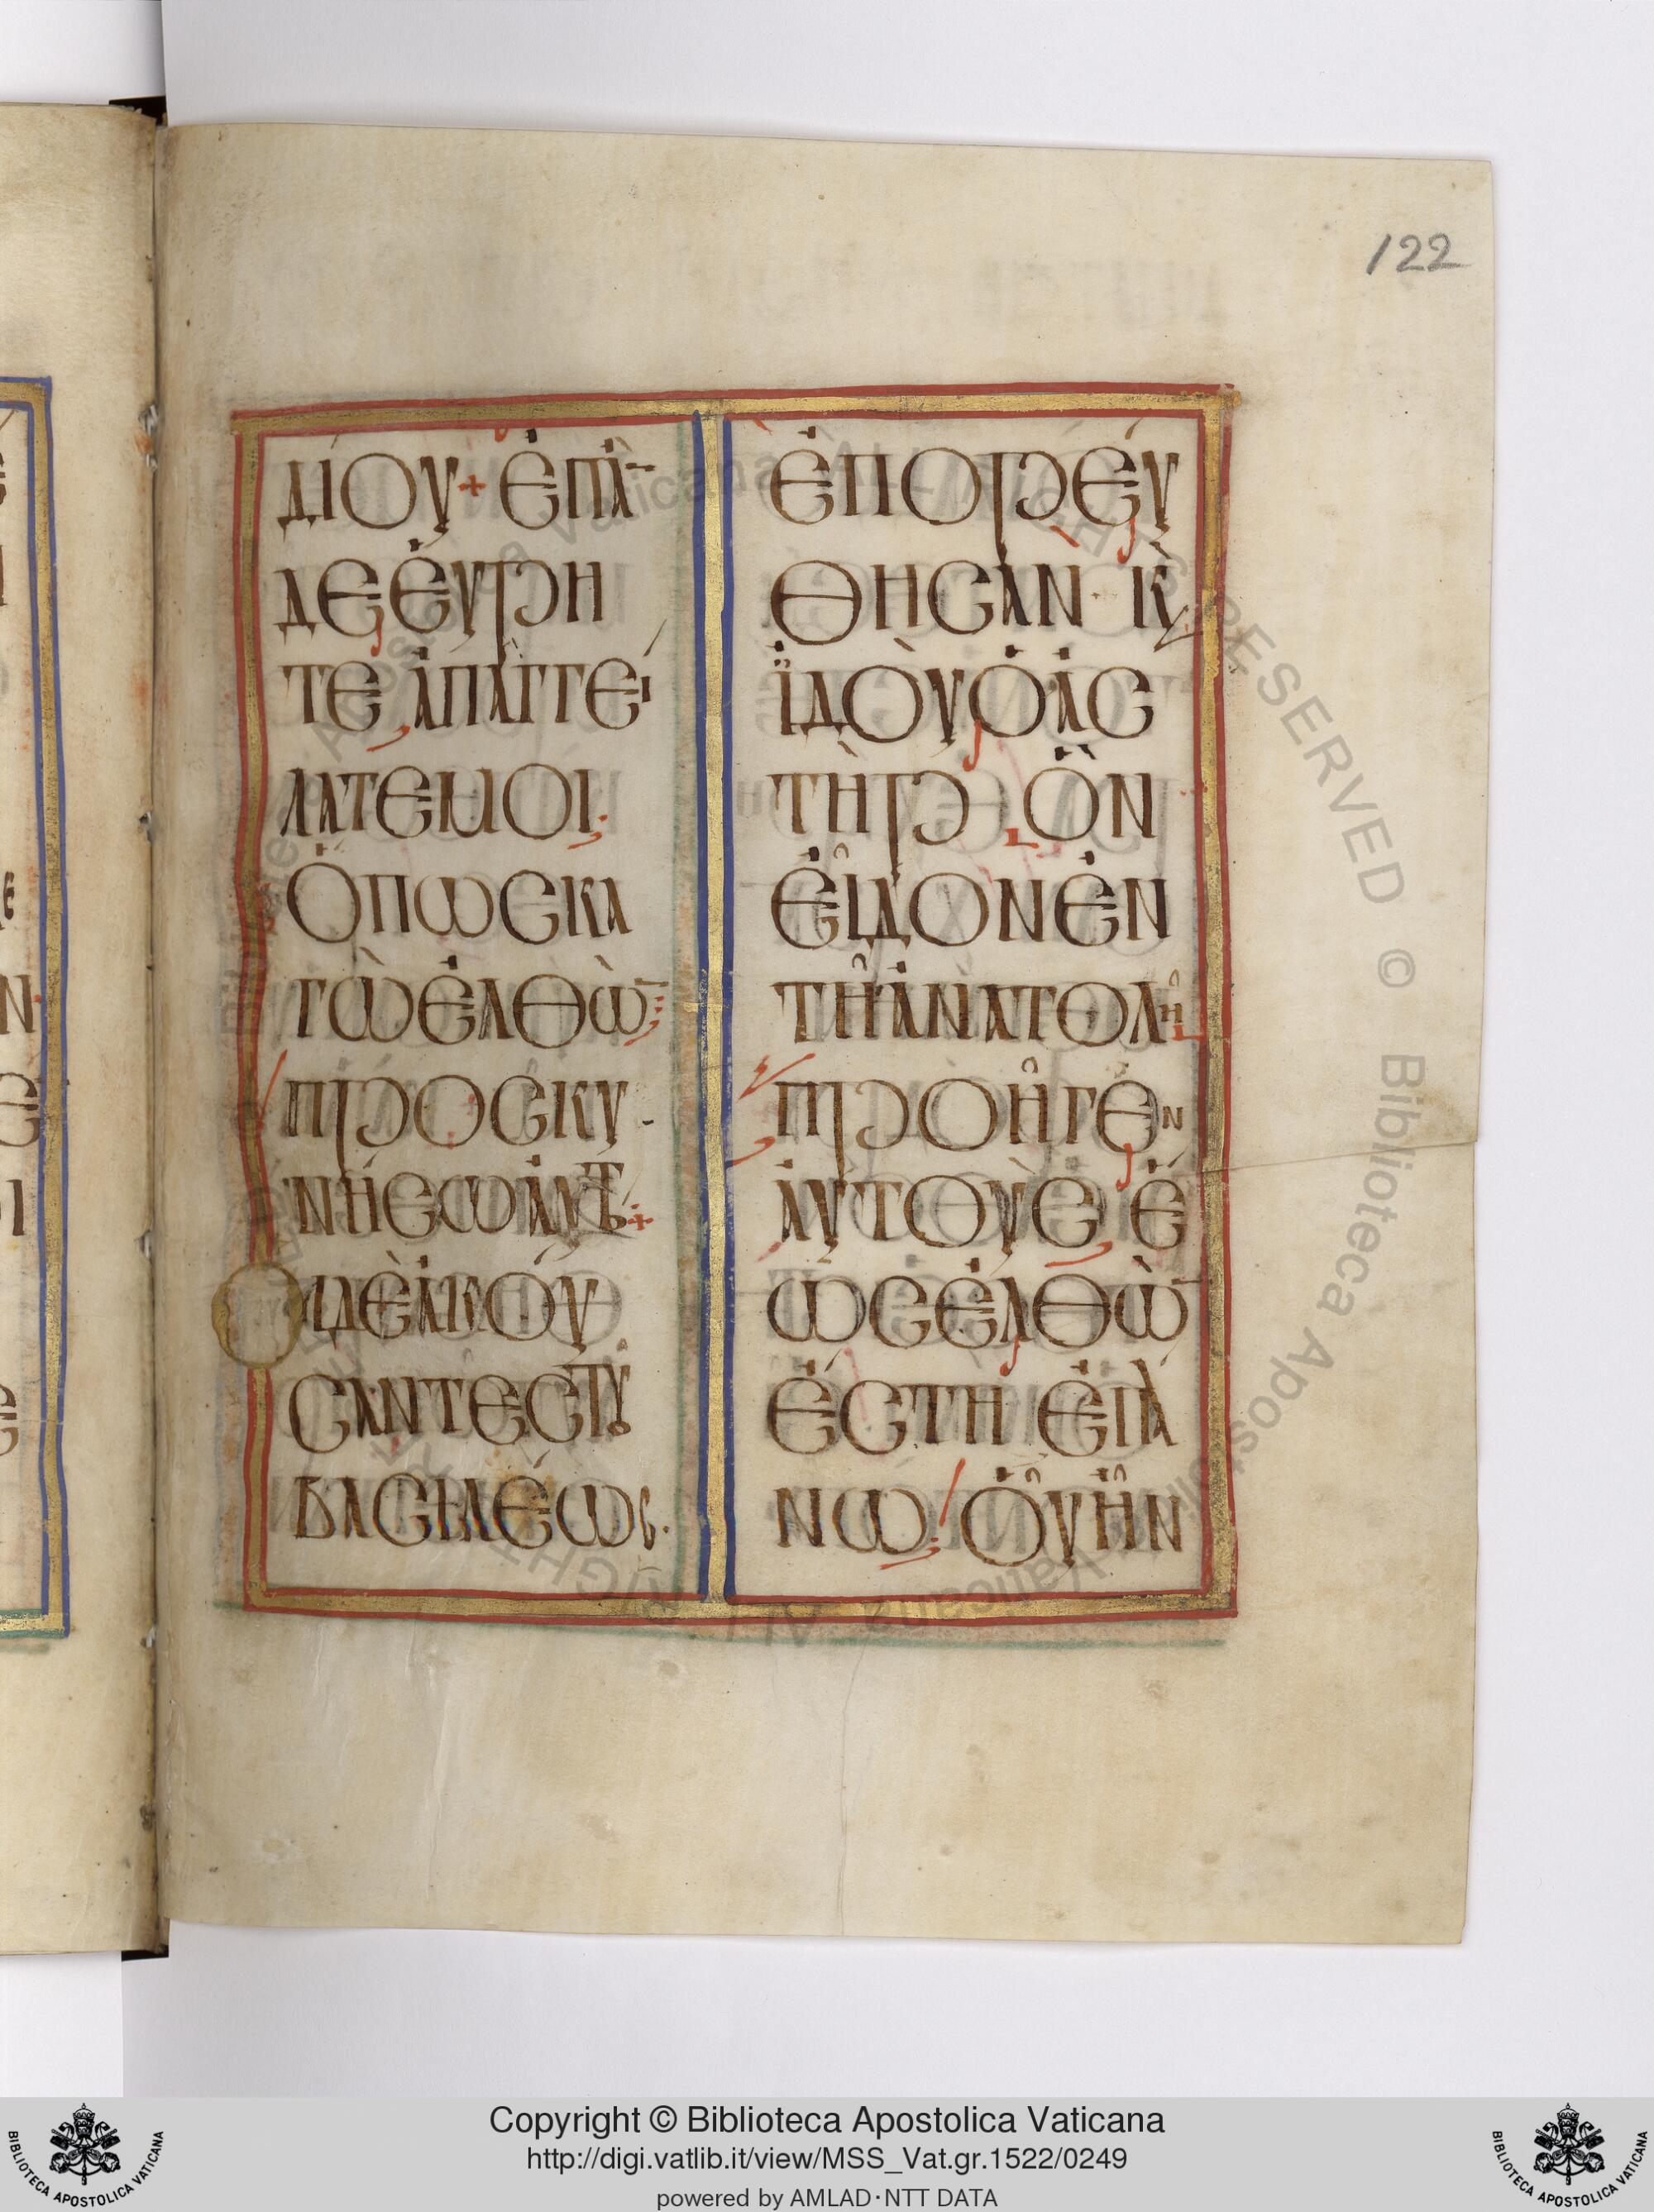 122
ΔΊΟΥ + ἘΠᾺ̅
ΔΕ ἘΥΡΗ
ΤΕ ἈΠΑΓΓΕΊ
ΛΑΤΕ ΜΟΙ.
ὍΠΩϹ ΚΑ
ΓῺ ἘΛΘῺ̅
ΠΡΟϹΚΥ
ΝΉϹΩ ἈΥΤ
ΟΙ ΔῈ ἈΚΟΎ
ϹΑΝΤΕϹ ΤΥ͂
ΒΑϹΙΛΈΩϹ.
ἘΠΟΡΕΎ
ΘΗϹΑΝ Κ̀
ἸΔΟῪ Ὁ ἈϹ
ΤῊΡ ὋΝ
ΕἾΔΟΝ ἘΝ
ΤΗ͂ ἈΝΑΤΟΛΗ͂
ΠΡΟΗ͂ΓΕΝ
ἈΥΤΟῪϹ Ἕ
ΩϹ ἘΛΘῺ̅
ἜϹΤΗ ἘΠΆ
ΝΩ ὋΥ͂ ἮΝ
Copyright © Biblioteca Apostolica Vaticana
http://digi.vatlib.it/view/MSS_Vat.gr.1522/0249
powered by AMLAD·NTT DATA
BIBLIOTECA APOSTOLICA VATICANA
BIBLIOTECA APOSTOLICA VATICANA